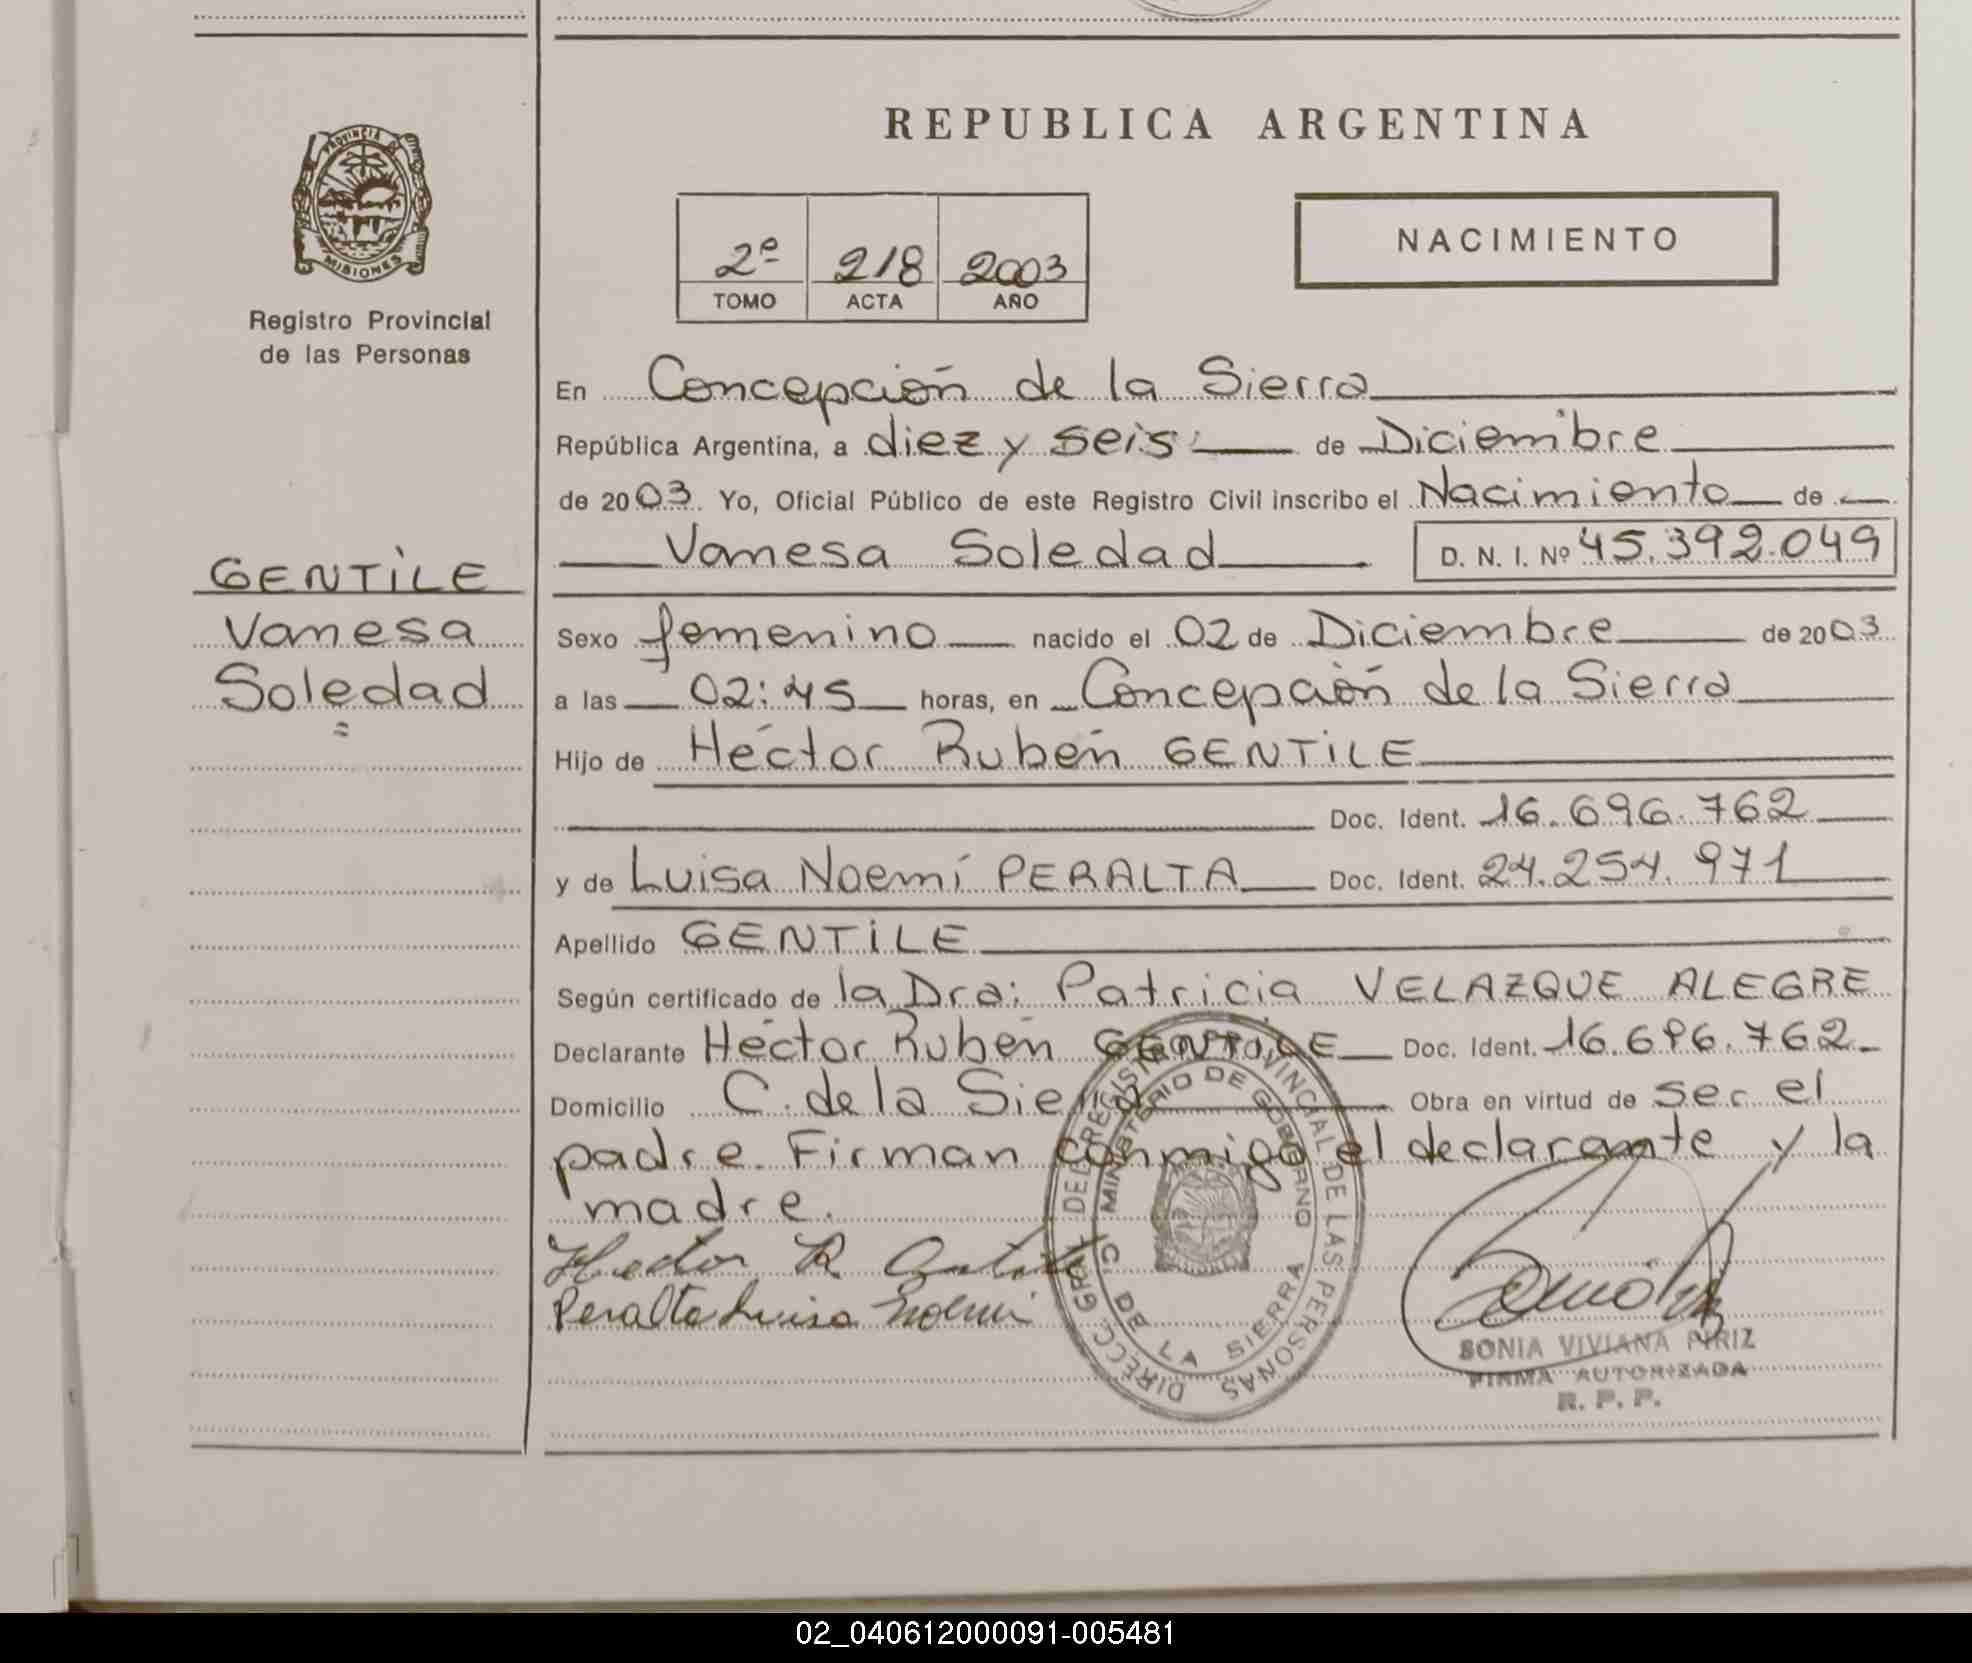 REPUBLICA ARGENTINA
PROVINCIA DE
MISIONES
Registro Provincial
de las Personas
2º 218 2003
TOMO ACTA AÑO
NACIMIENTO
En Concepción de la Sierra
República Argentina, a diez y seis de Diciembre
de 2003. Yo, Oficial Público de este Registro Civil inscribo el Nacimiento de
Vanesa Soledad D. N. I. Nº 45.392.049
GENTILE
Vanesa
Soledad
Sexo femenino nacido el 02 de Diciembre de 2003
a las 02:45 horas, en Concepción de la Sierra
Hijo de Héctor Rubén GENTILE
Doc. Ident. 16.696.762
y de Luisa Noemí PERALTA Doc. Ident. 24.254.971
Apellido GENTILE
Según certificado de la Dra: Patricia VELAZQUE ALEGRE
Declarante Héctor Rubén GENTILE Doc. Ident. 16.696.762
Domicilio C. de la Sierra Obra en virtud de ser el
padre. Firman conmigo el declarante y la
madre.
Hector R
Peralta Luisa Noemi
DIRECC. GRAL. DEL REGISTRO PROVINCIAL DE LAS PERSONAS
MINISTERIO DE GOBIERNO
C. DE LA SIERRA
SONIA VIVIANA PIRIZ
FIRMA AUTORIZADA
R. P. P.
02_040612000091-005481